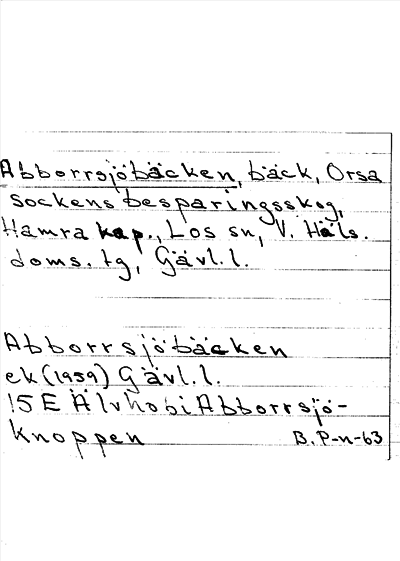 Abborrsjöbäcken, bäck, Orsa
sockens besparingsskog,
Hamra kap., Los sn, V. Häls.
doms. tg, Gävl.l.
Abborrsjöbäcken
ek (1959) Gävl.l.
15 E Älvho bi Abborrsjö-
knoppen
B. P-n-63